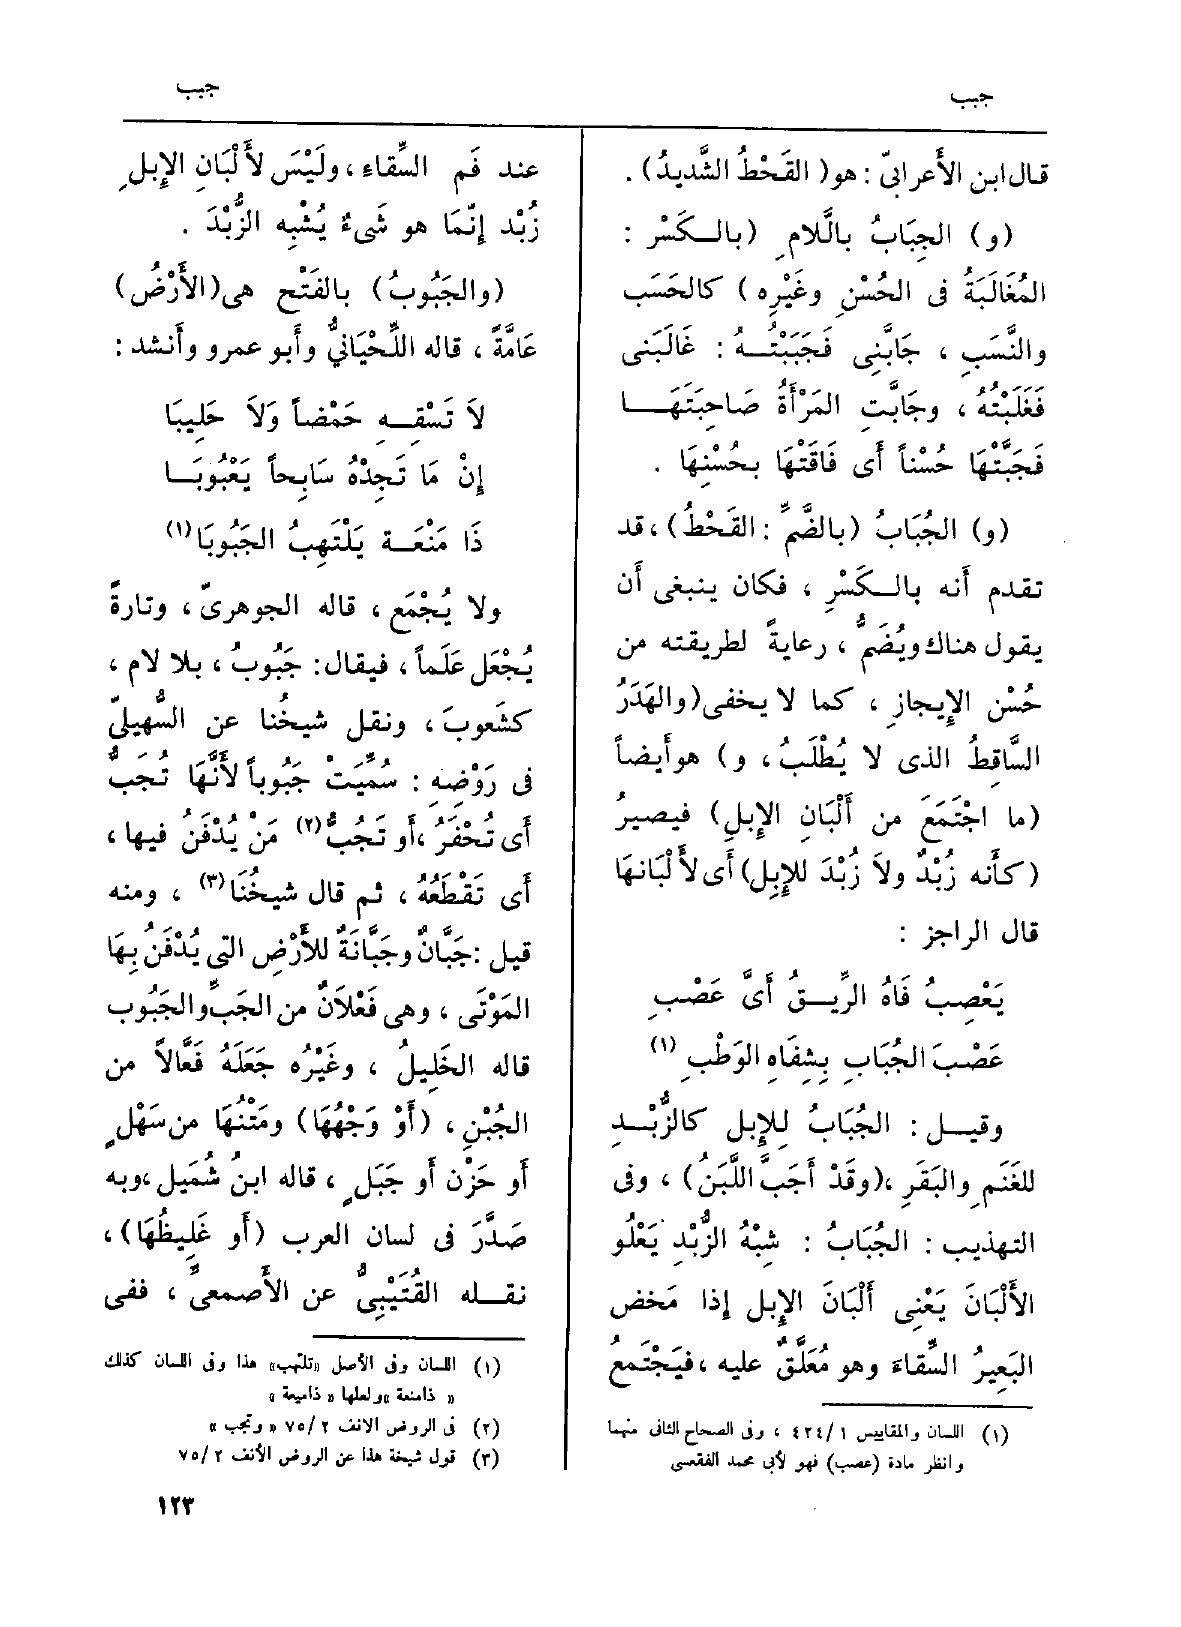 جبب
جبب
قال ابن الأَعرابىّ : هو ( القَحْطُ الشَّدِيدُ ) .
( و ) الجِبَابُ بالَّلامِ ( بالـكَسْر :
المُغَالَبَةُ فى الحُسْنِ وغَيْرِه ) كالحَسَب
والنَّسَبِ ، جَابَّنِى فَجَبَبْتُـهُ : غَالَبَنى
فَغَلَبْتُهُ ، وجَابَّتِ المَرْأَةُ صَاحِبَتَهَـا
فَجَبَّتْهَا حُسْناً أَى فَاقَتْهَا بِحُسْنِهَا .
( و ) الجُبَابُ ( بالضَّمِّ : القَحْطُ ) ، قد
تقدم أَنه بالـكَسْرِ ، فكان ينبغى أَن
يقول هناك ويُضَمُّ ، رعايةً لطريقته من
حُسْن الإِيجازِ ، كما لا يخفى ( والهَدَرُ
السَّاقِطُ الذى لا يُطْلَبُ ، و ) هو أَيضاً
( ما اجْتَمَعَ من أَلْبَان الإِبِلِ ) فيصيرُ
( كأَنه زُبْدٌ ولاَ زُبْدَ للإِبِل ) أَى لأَلْبَانها
قال الراجز :
يَعْصِبُ فَاهُ الرِّيـقُ أَىَّ عَصْبِ
عَصْبَ الجُبَابِ بِشِفَاهِ الوَطْبِ (١)
وقيـل : الجُبَابُ لِلإِبل كالزُّبْـدِ
للغَنَمِ والبَقَرِ ، ( وقَدْ أَجَبَّ اللَّبَنُ ) ، وفى
التهذيب : الجُبَابُ : شِبْهُ الزُّبْدِ يَعْلُو
الأَلْبَانَ يَعْنِى أَلْبَانَ الإِبل إِذا مَخَض
البَعِيرُ السِّقَاءَ وهو مُعَلَّقٌ عليه ، فيَجْتَمعُ
(١) اللسان والمقاييس ٤٢٤/١ ، وفى الصحاح الثانى منهما
وانظر مادة (عصب) فهو لأبى محمد الفقعسى
عند فَم السِّقاء ، ولَيْسَ لأَلْبَانِ الإِبلِ
زُبْد إِنَّمَا هو شَىءٌ يُشْبِه الزُّبْدَ .
( والجَبُوبُ ) بالفَتْح هى ( الأَرْضُ )
عَامَّةً ، قاله اللِّحْيَانىُّ وأَبو عمرو وأَنشد :
لاَ تَسْقِـهِ حَمْضاً وَلاَ حَلِيبَا
إِنْ مَا تَجِدْهُ سَابِحاً يَعْبُوبَـا
ذَا مَنْعَـة يَلْتَهِبُ الجَبُوبَا (١)
ولا يُجْمَع ، قاله الجوهرىّ ، وتارةً
يُجْعَل عَلَماً ، فيقال : جَبُوبُ ، بلا لام ،
كشَعُوبَ ، ونقل شيخُنا عن السُّهيلىّ
فى رَوْضِهِ : سُمِّيَتْ جَبُوباً لأَنَّهَا تُجَبُّ
أَى تُحْفَرُ ، أَو تَجُبُّ (٢) مَنْ يُدْفَنُ فيها ،
أَى تَقْطَعُهُ ، ثم قال شيخُنَا (٣) ، ومنه
قيل : جَبَّانٌ وجَبَّانَةٌ للأَرْضِ التى يُدْفَنُ بِهَا
المَوْتَى ، وهى فَعْلاَنٌ من الجَبِّ والجَبُوب
قاله الخَلِيلُ ، وغَيْرُه جَعَلَهُ فَعَّالاً من
الجُبْنِ ، ( أَوْ وَجْهُهَا ) ومَتْنُهَا من سَهْلٍ
أَو حَزْن أَو جَبَلٍ ، قاله ابنُ شُمَيل ، وبه
صَدَّرَ فى لسان العرب ( أَو غَلِيظُهَا ) ،
نقـله القُتَيْبِىُّ عن الأَصمعىِّ ، ففى
(١) اللسان وفى الأصل «تلتهب» هذا وفى اللسان كذلك
« ذا منعة » ولعلها « ذا ميعة »
(٢) فى الروض الانف ٧٥/٢ « وتجب »
(٣) قول شيخه هذا عن الروض الأنف ٧٥/٢
١٢٣